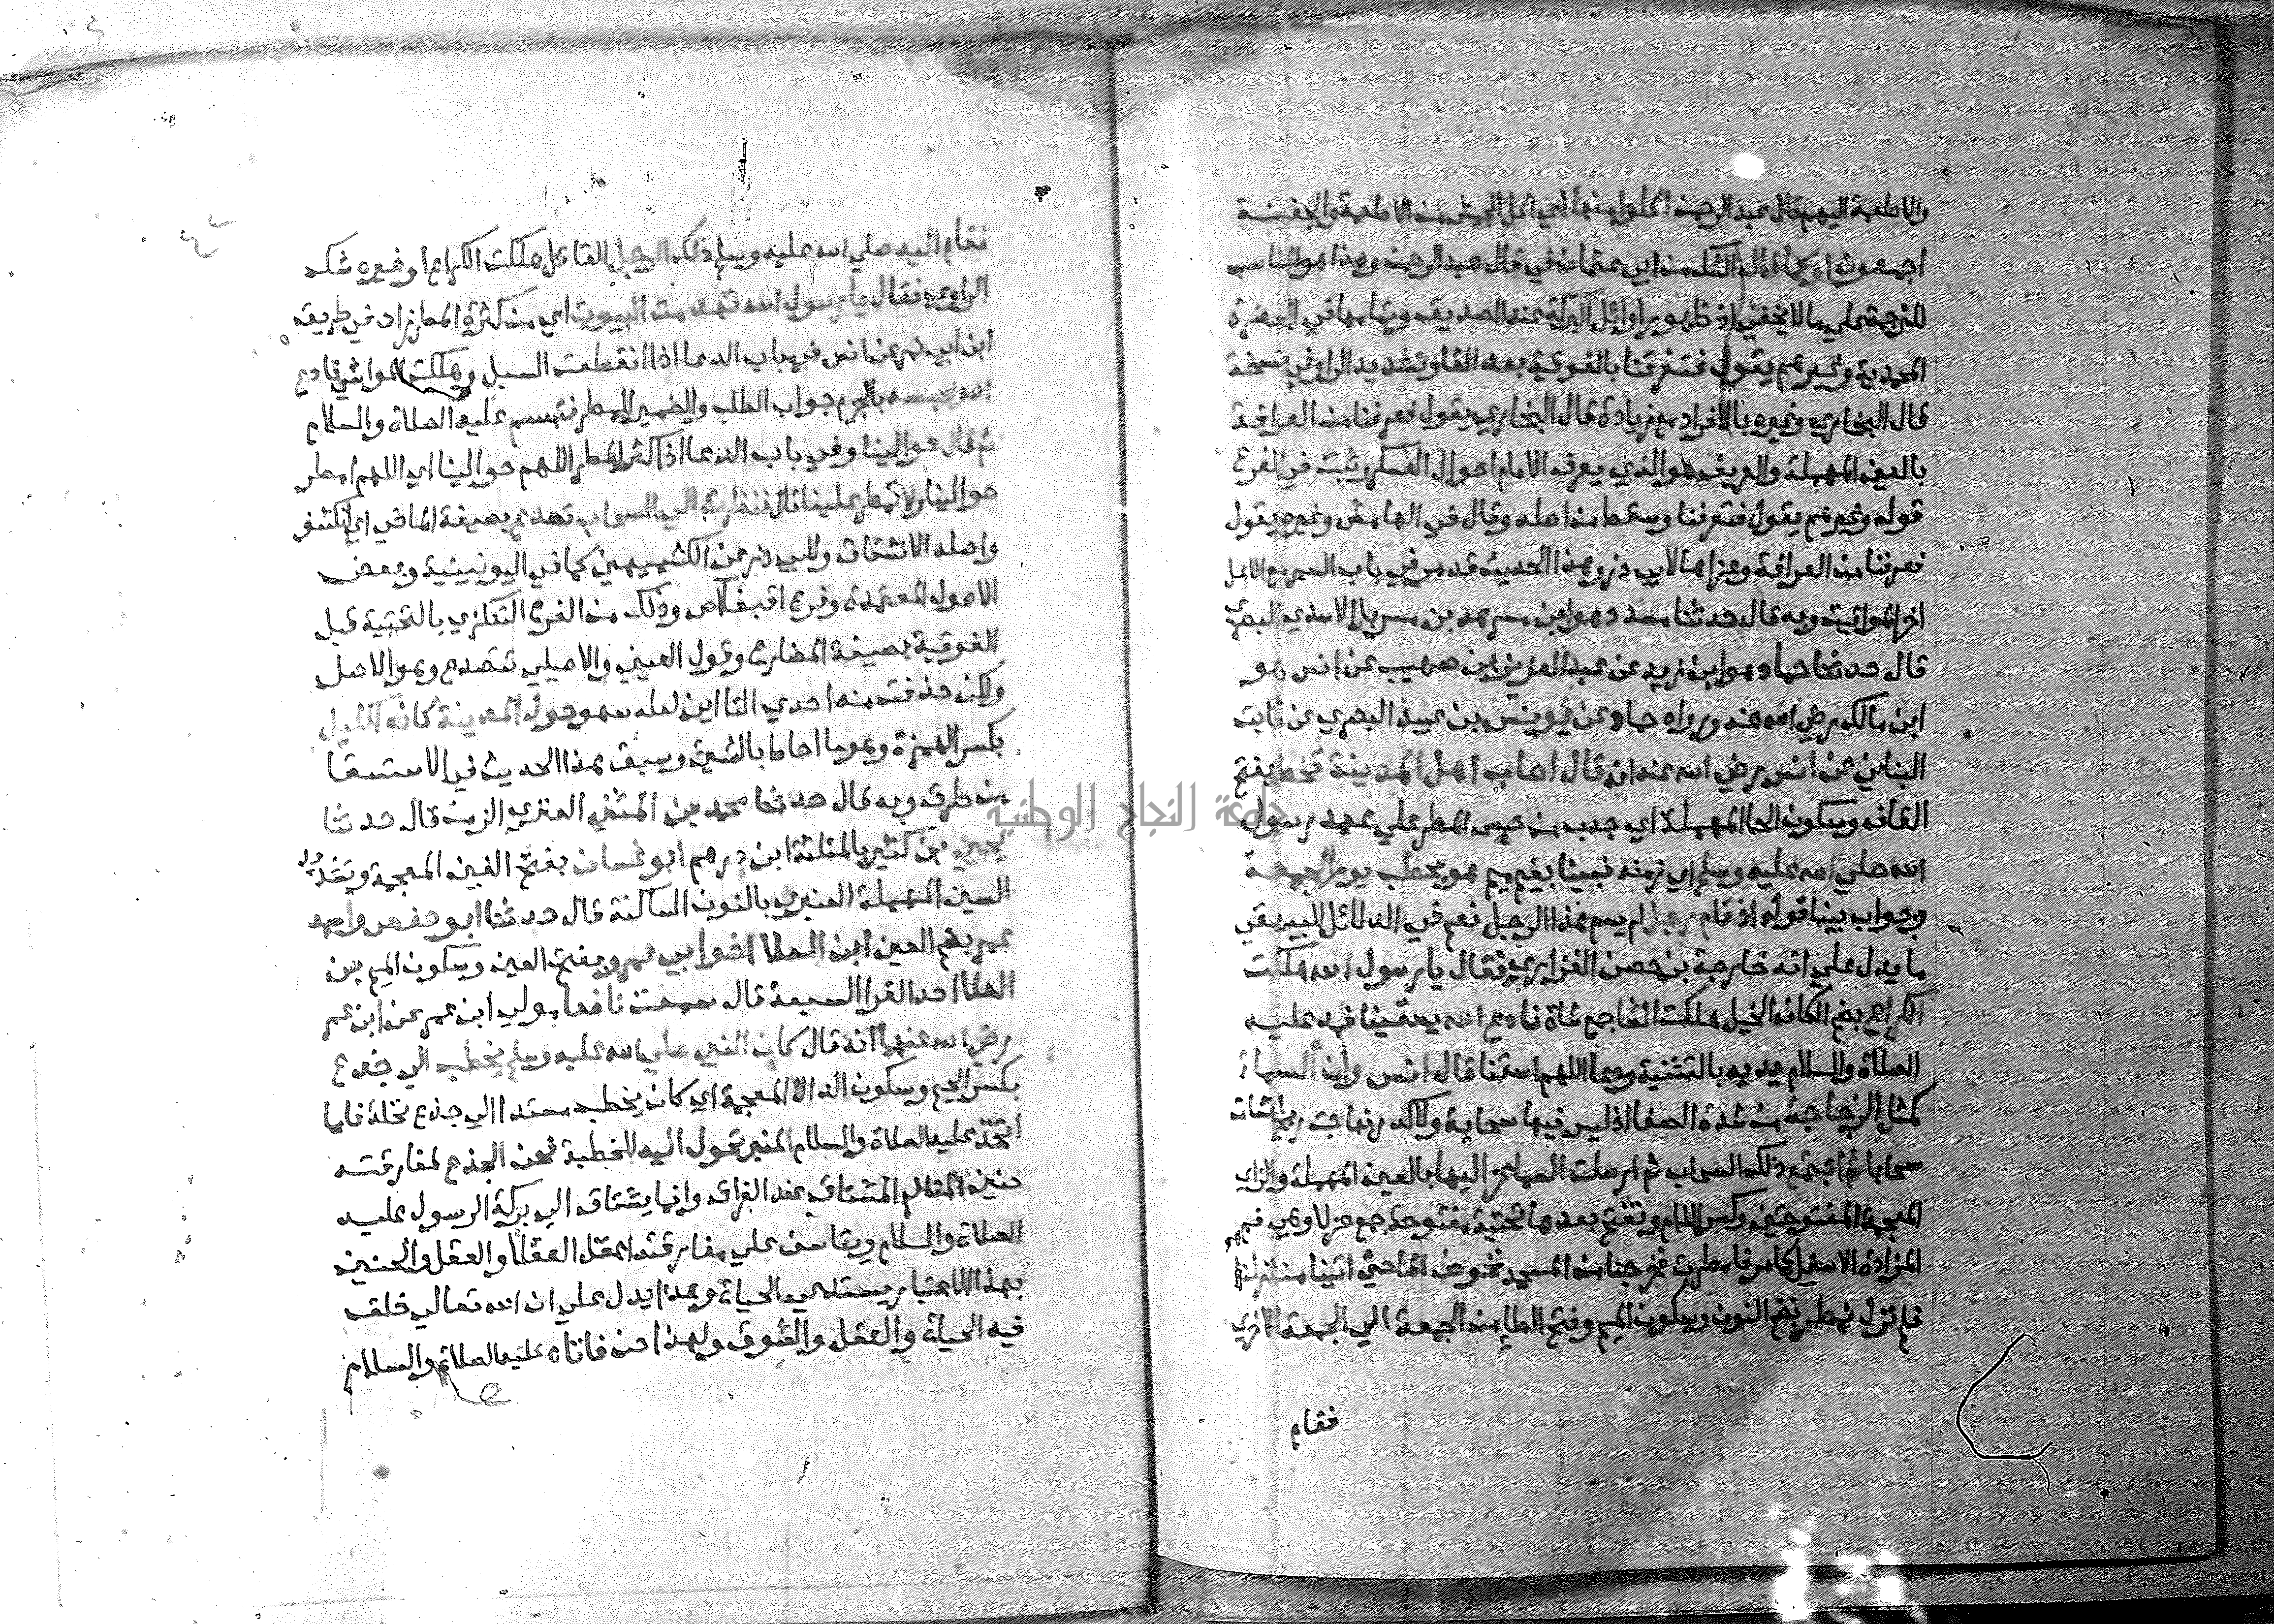 والاطعمة اليهم قال عبد الرحمن اكلوا منها اي اكل الجيش من الاطعمة والجفنة
اجمعون او كما قال الشك من ابي عثمان في قال عبد الرحمن وهذا هو المناسب
للترجمة علي ما لا يخفي اذ ظهور اوائل البركة عند الصديق وتمامها في الحضرة
المحمدية وغيرهم يقول فتفرقنا بالفوقية بعد الفا وتشديد الرا وفي نسخة
قال البخاري وغيره بالافراد مع زيادة قال البخاري يقول فعرفنا من العرافة
بالعين المهملة والعريف هو الذي يعرف الامام احوال العسكر وثبت في الفرع
قوله وغيرهم يقول فتفرقنا وسقط من اصله وقال في الهامش وغيره يقول
فعرفنا من العرافة وعزاها لابي ذر وهذا الحديث قد مر في باب السمر مع الاهل
اخر المواقيت وبه قال حدثنا مسدد هو ابن مسرهد بن مسربل الاسدي البصري
قال حدثنا حماد هو ابن زيد عن عبد العزيز ابن صهيب عن انس هو
ابن مالك رضي الله عنه ورواه حماد عن يونس بن عبيد البصري عن ثابت
البناني عن انس رضي الله عنه انه قال اصاب اهل المدينة قحط بفتح
القاف وسكون الحا المهملة اي جدب من حبس المطر علي عهد رسول
الله صلي الله عليه وسلم اي زمنه فبينا بغير ميم هو يخطب يوم الجمعة
وجواب بينا قوله اذ قام رجل لم يسم هذا الرجل نعم في الدلائل للبيهقي
ما يدل علي انه خارجة بن حصن الفزاري فقال يا رسول الله هلكت
الكراع بضم الكاف الخيل هلكت الشا جمع شاة فادع الله يسقينا فمد عليه
الصلاة والسلام يديه بالتثنية ودعا اللهم اسقنا قال انس وان السماء
كمثل الزجاجة من شدة الصفا اذ ليس فيها سحابة ولا كدر فهاجت ريح انشات
سحابا ثم اجتمع ذلك السحاب ثم ارسلت السما عزاليها بالعين المهملة والزاي
المعجمة المفتوحتين وكسر اللام وتفتح بعدها تحتية مفتوحة جمع عزلا وهي فم
المزادة الاسفل كما مر فامطرت فخرجنا من المسجد نخوض الما حتي اتينا منازلنا
فلم نزل نمطر بضم النون وسكون الميم وفتح الطا من الجمعة الي الجمعة الاخري
فقام
فقام اليه صلي الله عليه وسلم ذلك الرجل القائل هلكت الكراع او غيره شك
الراوي فقال يا رسول الله تهدمت البيوت اي من كثرة المطر زاد في طريق
ابن ابي نمر عن انس في باب الدعا اذا انقطعت السبل وهلكت المواشي فادع
الله يحبسه بالجزم جواب الطلب والضمير للمطر فتبسم عليه الصلاة والسلام
ثم قال حوالينا وفي باب الدعا اذا كثر المطر اللهم حوالينا اي اللهم امطر
حوالينا ولا تمطر علينا قال فنظرت الي السحاب تصدع بصيغة الماضي اي انكشف
واصله الانشقاق ولابي ذر عن الكشميهني كما في اليونينية وبعض
الاصول المعتمدة وفرع اقبغاص وذلك من الفرع التنكزي بالتحتية قبل
الفوقية بصيغة المضارع وقول العيني والاصيلي تتصدع وهو الاصل
ولكن حذفت منه احدي التااين لعله سهو حول المدينة كانه اكليل
بكسر الهمزة وهو ما احاط بالشيئ وسبق هذا الحديث في الاستسقا
من طرق وبه قال حدثنا محمد بن المثني العنزي الزمن قال حدثنا
يحيي بن كثير بالمثلثة ابن درهم ابو غسان بفتح الغين المعجمة وتشديد
السين المهملة العنبري بالنون الساكنة قال حدثنا ابو حفص واسمه
عمر بضم العين ابن العلا اخو ابي عمرو بفتح العين وسكون الميم بن
العلا احد القرا السبعة قال سمعت نافعا مولي ابن عمر عن ابن عمر
رضي الله عنهما انه قال كان النبي صلي الله عليه وسلم يخطب الي جذع
بكسر الجيم وسكون الذال المعجمة اي كان يخطب مستندا الي جذع نخلة فلما
اتخذ عليه الصلاة والسلام المنبر تحول اليه للخطبة فحن الجذع لمفارقته
حنين المتالم المشتاق عند الفراق وانما يشتاق الي بركة الرسول عليه
الصلاة والسلام ويتاسف علي مفارقته اعقل العقلا والعقل والحنين
بهذا الاعتبار يستدعي الحياة وهذا يدل علي ان الله تعالي خلق
فيه الحياة والعقل والشوق ولهذا حن فاتاه عليه الصلاة والسلام
جامعة النجاح الوطنية